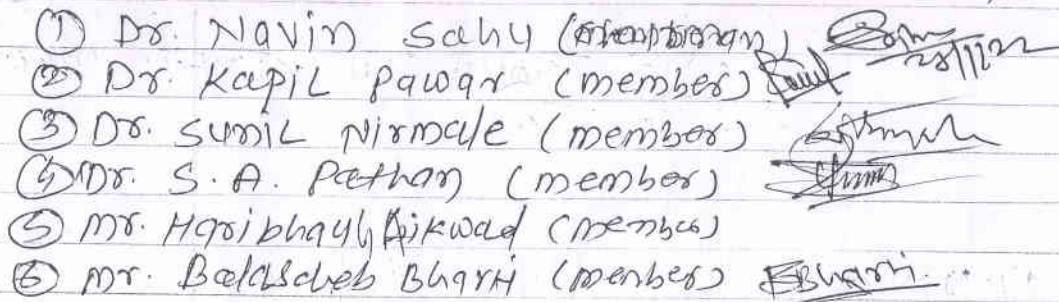 ① Dr. Navin Sahu
② Dr. Kapil Pawar (member)
③ Dr. Sunil Nirmale (member)
④ Dr. S. A. Pathan (member)
⑤ Mr. Haribhau Gaikwad (member)
⑥ Mr. Balasaheb Bharti (member) Bharti